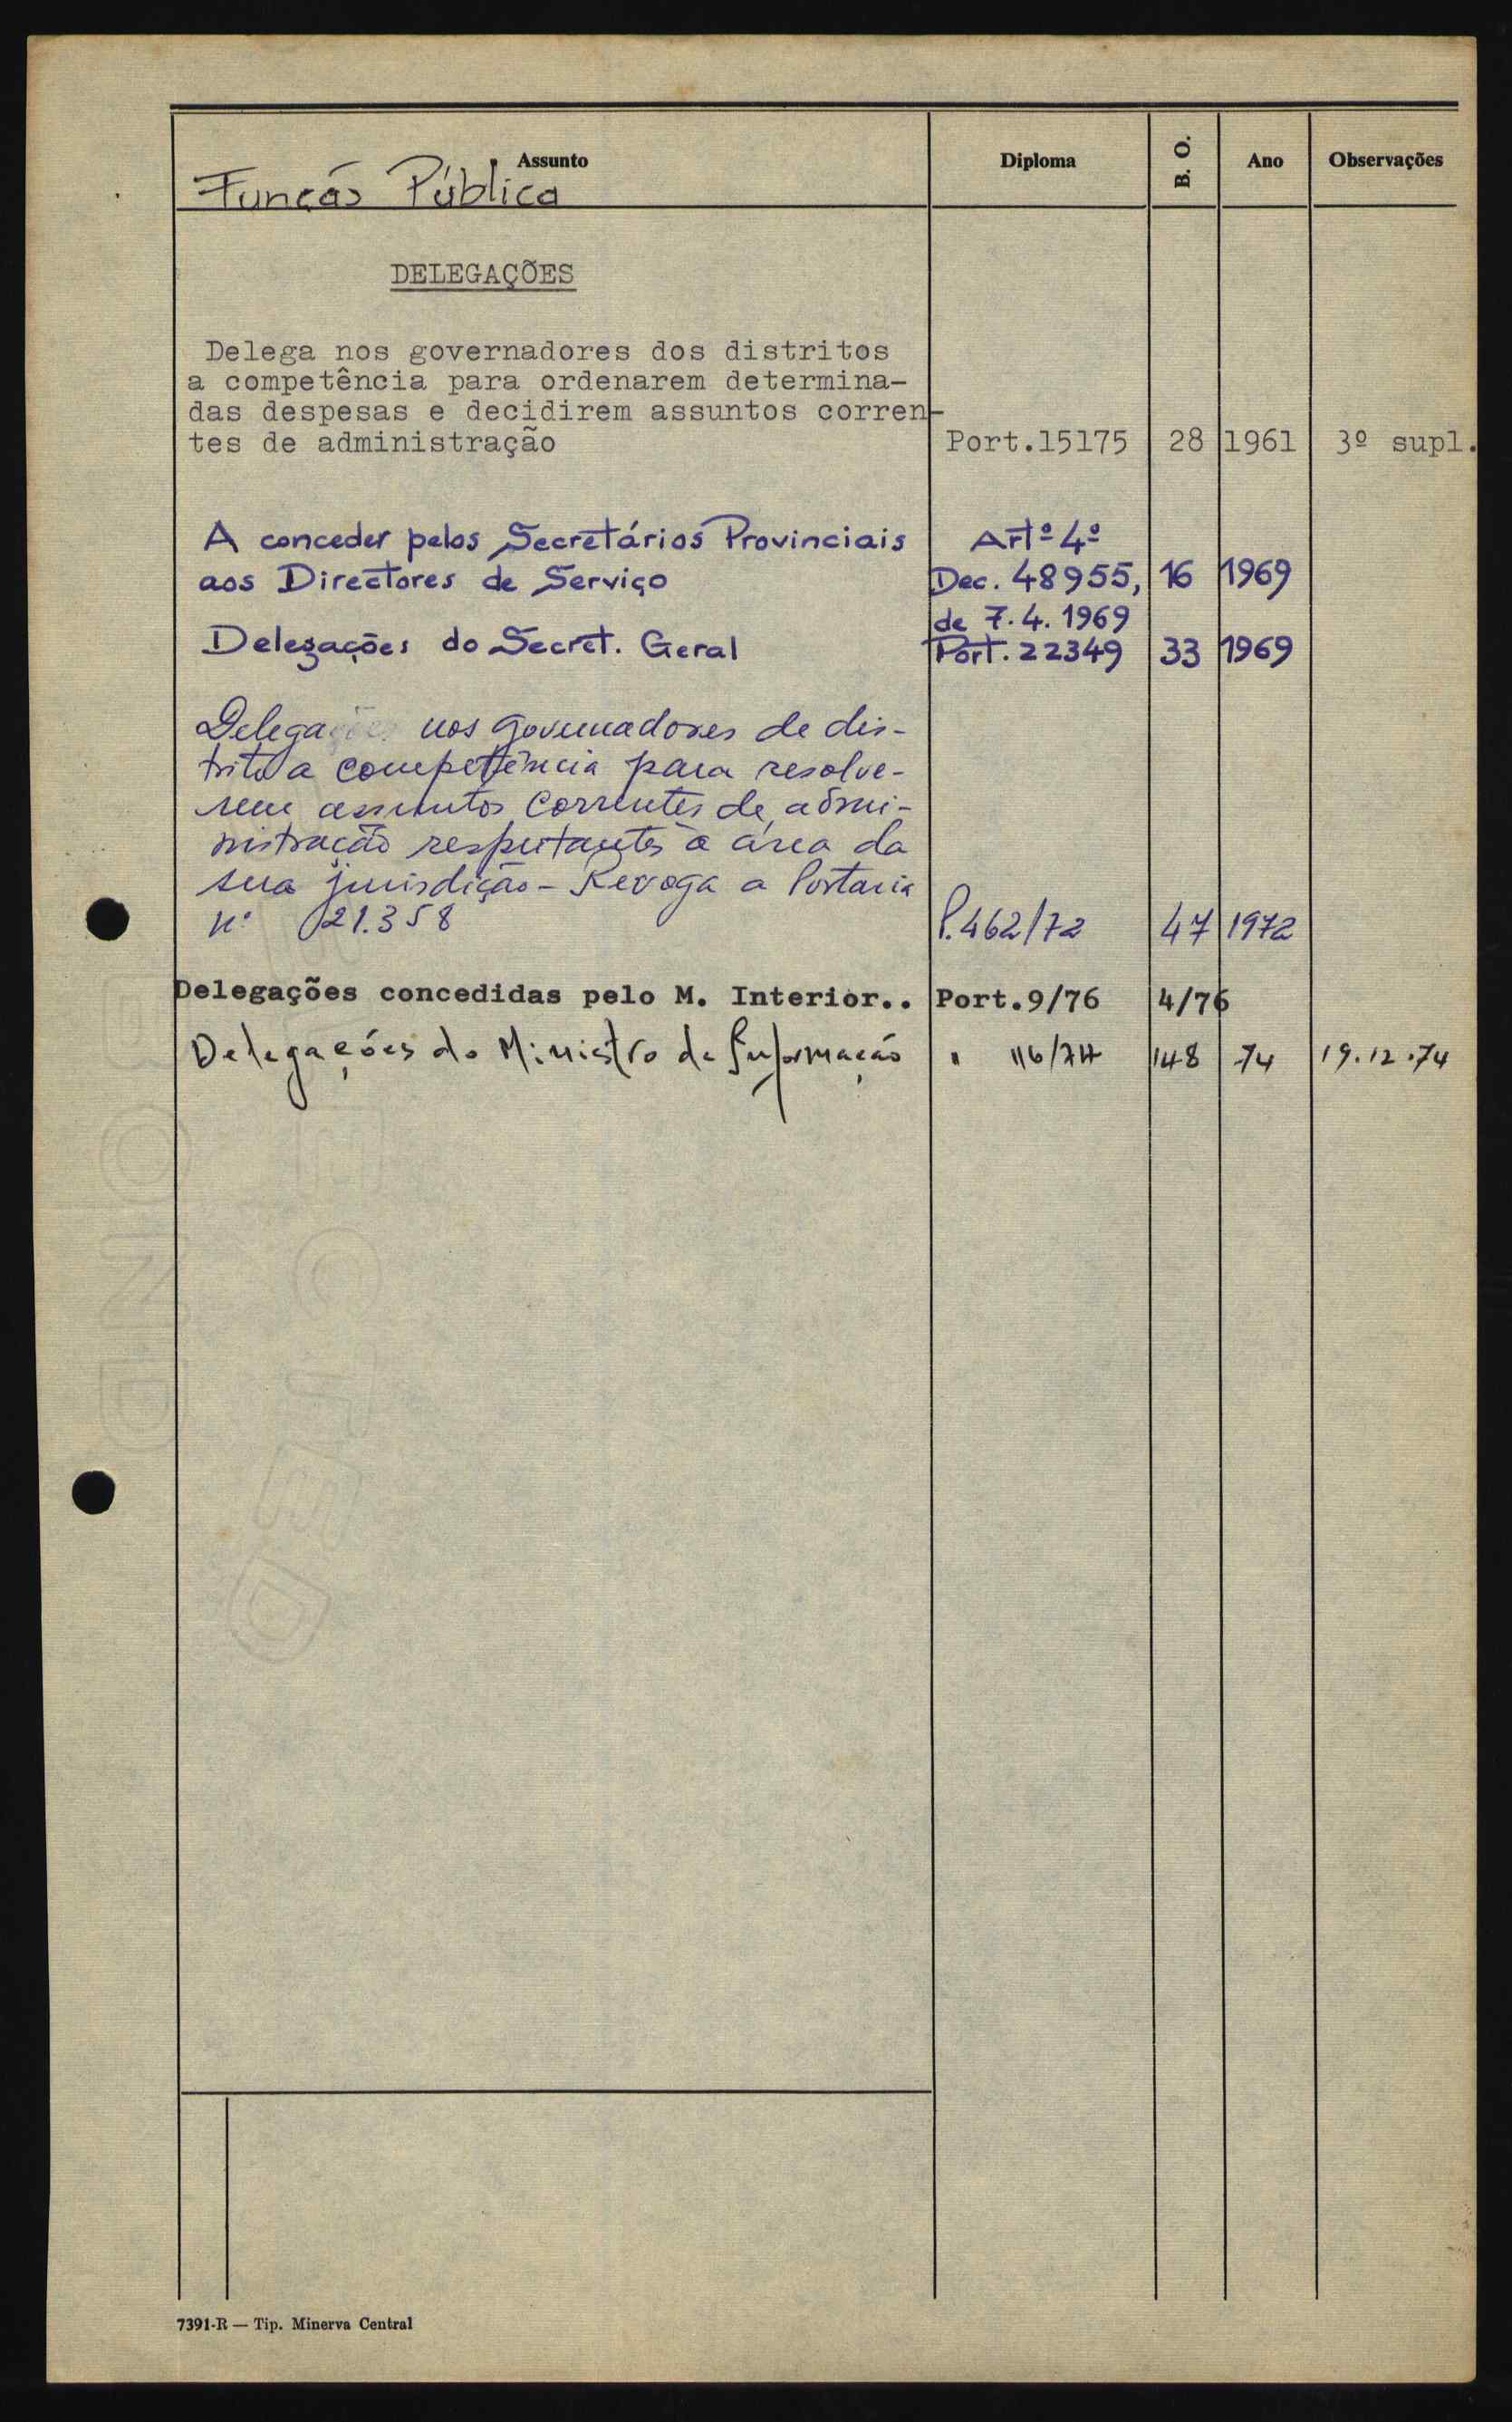 Assunto Diploma B. O. Ano Observações
Função Pública
DELEGAÇÕES
Delega nos governadores dos distritos
a competência para ordenarem determina-
das despesas e decidirem assuntos corren-
tes de administração Port.15175 28 1961 3º supl.
A conceder pelos Secretários Provinciais Artº 4º
aos Directores de Serviço Dec. 48955, 16 1969
de 7.4.1969
Delegações do Secret. Geral Port. 22349 33 1969
Delegações nos governadores de dis-
trito a competência para resolve-
rem assuntos correntes de admi-
nistração respeitantes à área da
sua jurisdição - Revoga a Portaria
nº 21.358 P.462/72 47 1972
Delegações concedidas pelo M. Interior.. Port.9/76 4/76
Delegações do Ministro da Informação " 116/74 148 74 19.12.74
7391-R — Tip. Minerva Central